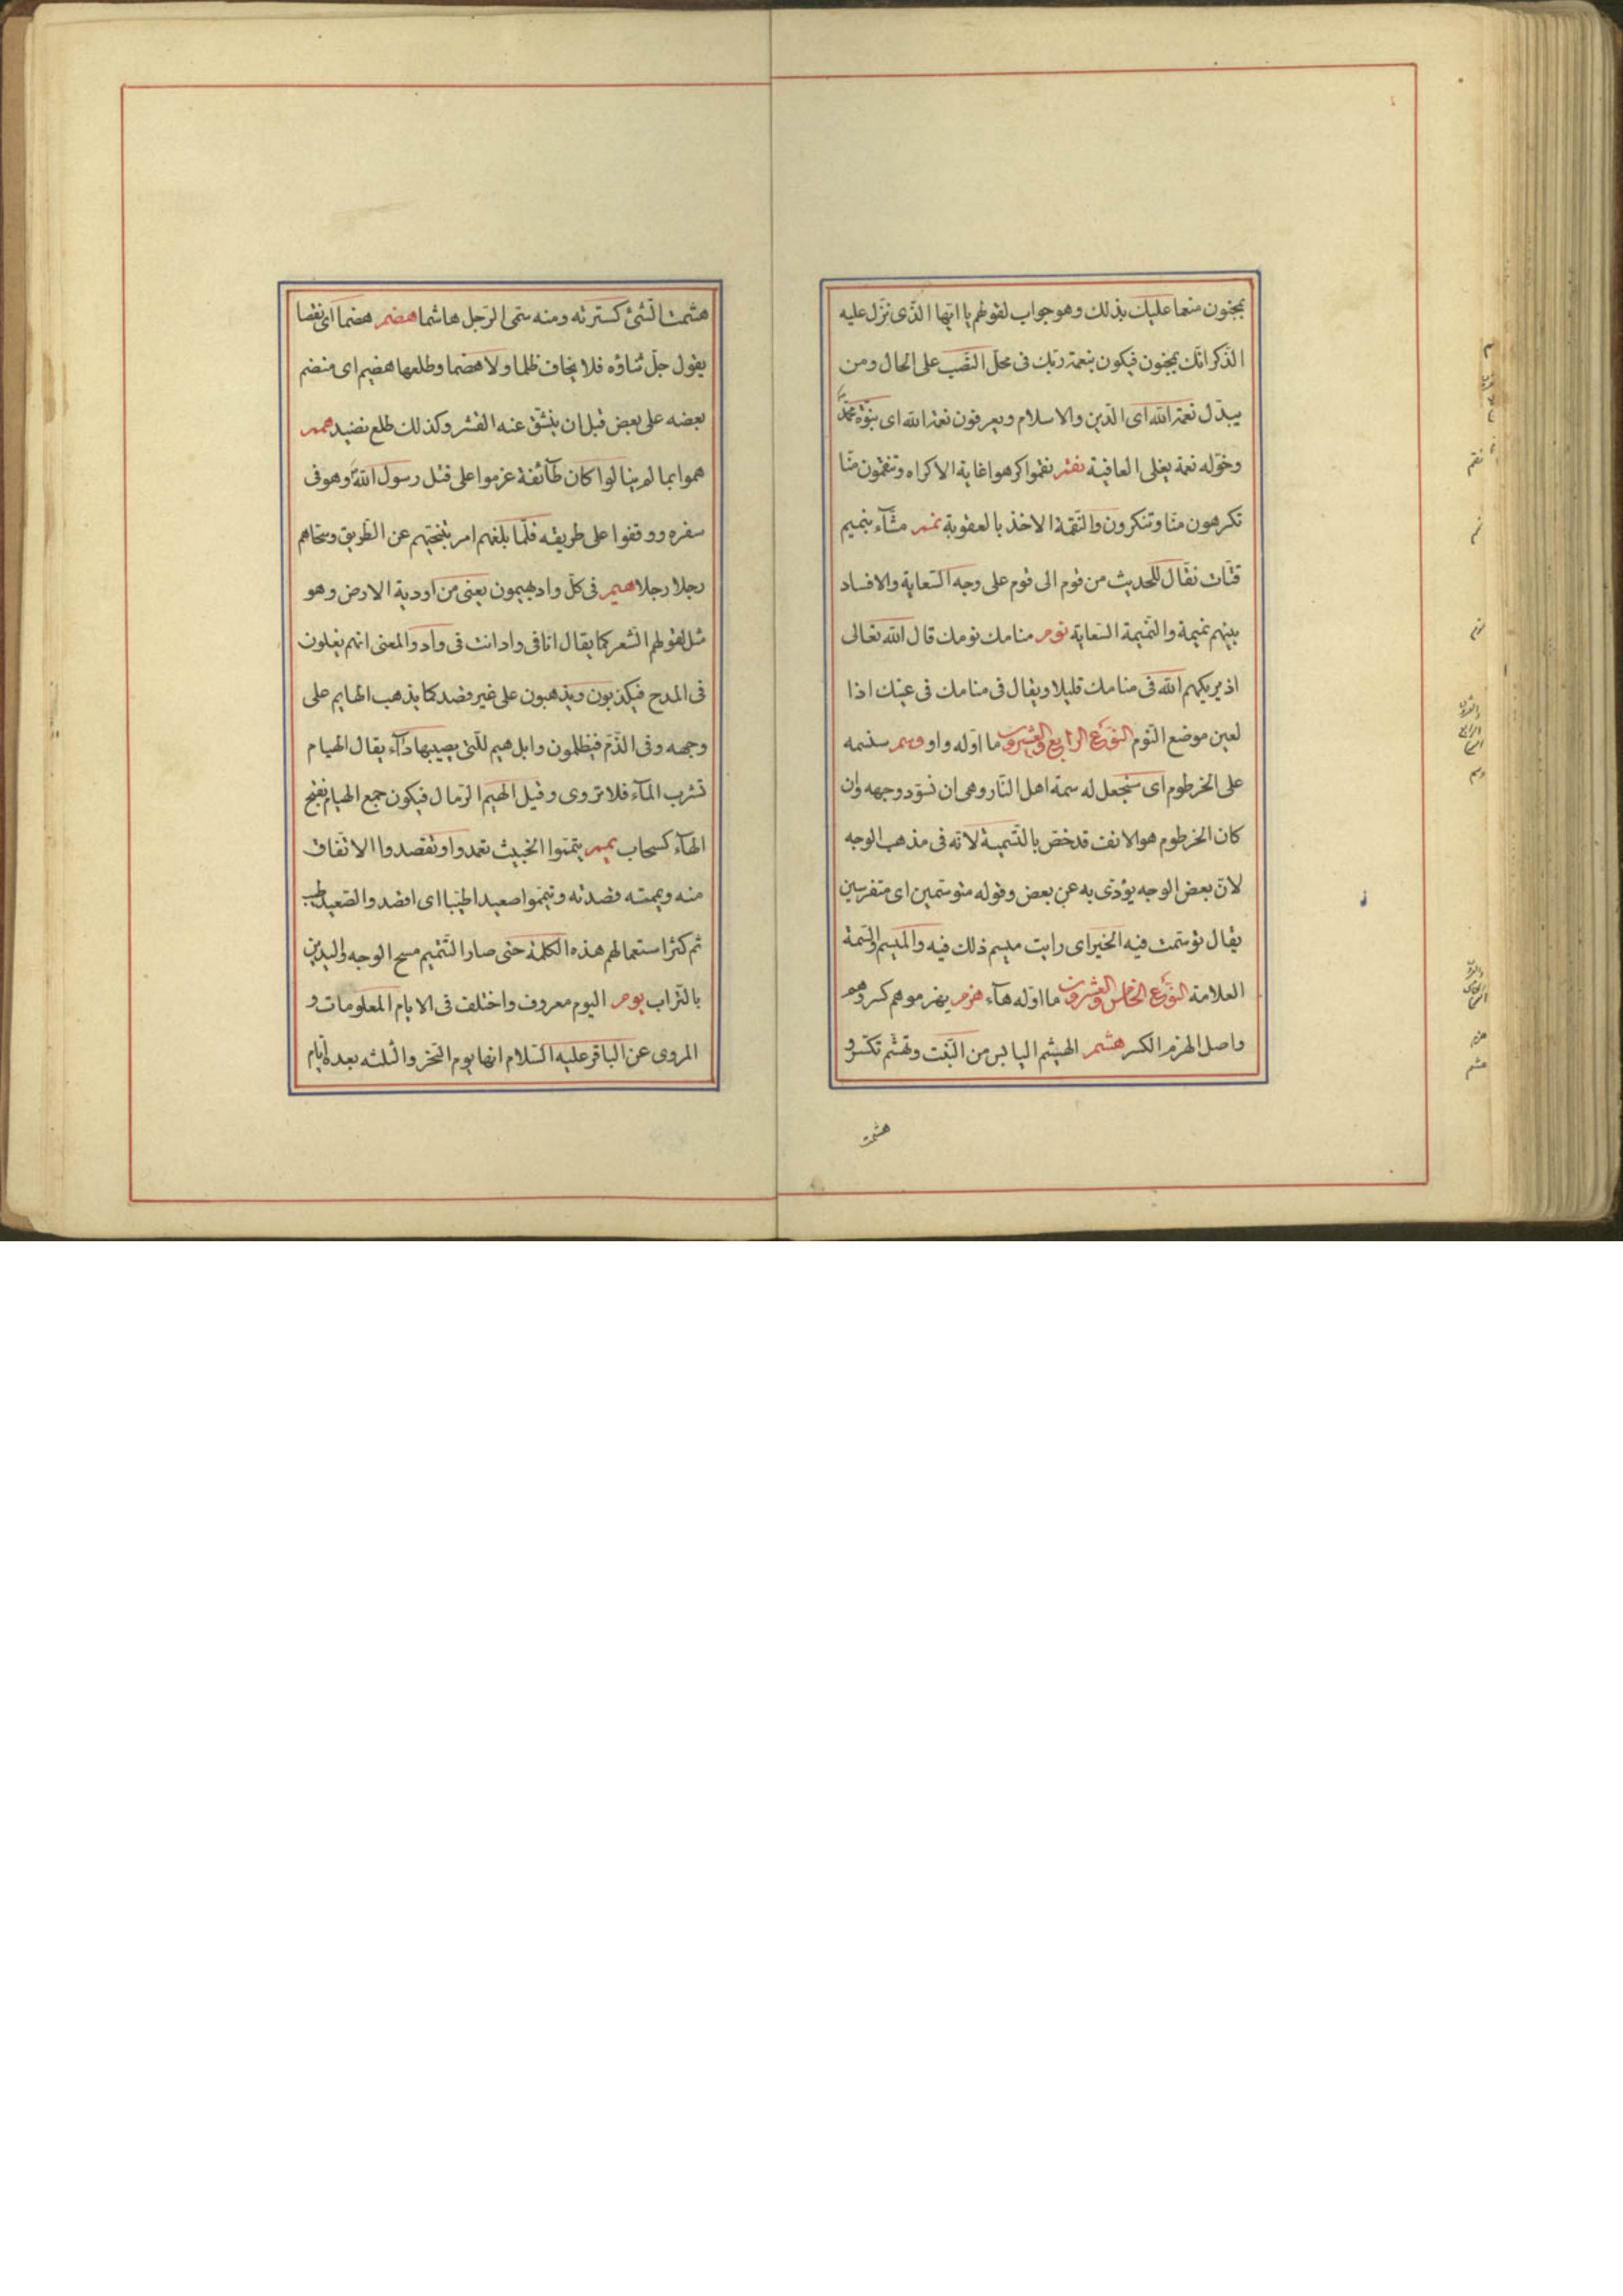 بمجنون منعما عليك بذلك وهو جواب لقولهم يا ايها الذى نزل عليه
الذكر انك لمجنون فيكون بنعمة ربك فى محل النصب على الحال ومن
يبدل نعمة الله اى الدين والاسلام ويعرفون نعمة الله اى بنوة محمد
وخوله نعمة يعنى العافية نقم نقموا كرهوا غاية الاكراه وتنقمون منا
تكرهون منا وتنكرون والنقمة الاخذ بالعقوبة نمم مشآء بنميم
قتات نقال للحديث من قوم الى قوم على وجه السعاية والافساد
بينهم نميمة والنميمة السعاية نوم منامك نومك قال الله تعالى
اذ يريكهم الله فى منامك قليلا ويقال فى منامك فى عينك اذا
لعين موضع النوم النوع الرابع والعشرون ما اوله واو وسم سنسمه
على الخرطوم اى سنجعل له سمة اهل النار وهى ان نسود وجهه وان
كان الخرطوم هو الانف قد خص بالتسمية لانه فى مذهب الوجه
لان بعض الوجه يؤدى به عن بعض وقوله متوسمين اى متفرسين
يقال توسمت فيه الخير اى رايت ميسم ذلك فيه والميسم والسمة
العلامة النوع الخامس والعشرون ما اوله هآء هزم يهزموهم كسروهم
واصل الهزم الكسر هشم الهشيم اليابس من النبت وتهشم تكسر و
هشمت
هشمت الشئ كسرته ومنه سمى الرجل هاشما هضم هضما اى نقصا
يقول جل ثناؤه فلا يخاف ظلما ولا هضما وطلعها هضيم اى منضم
بعضه على بعض قبل ان ينشق عنه القشر وكذلك طلع نضيد همم
هموا بما لم ينالوا كان طآئفة عزموا على قتل رسول الله وهو فى
سفره ووقفوا على طريقه فلما بلغهم امر بتنحيتهم عن الطريق وسماهم
رجلا رجلا هيم فى كل واد يهيمون يعنى من اودية الارض وهو
مثل لقولهم الشعر كما يقال انا فى واد انت فى واد والمعنى انهم يغلون
فى المدح فيكذبون ويذهبون على غير قصد كما يذهب الهايم على
وجهه وفى الذم فيظلمون وابل هيم للتى يصيبها دآء يقال الهيام
تشرب المآء فلا تروى وقيل الهيم الرمال فيكون جمع الهيام بفتح
الهآء كسحاب يمم يتمنوا الخبيث تعمدوا وتقصدوا الانفاق
منه ويممته قصدته وتيمموا صعيدا طيبا اى اقصد والصعيد طيب
ثم كثر استعمالهم هذه الكلمة حتى صار التيمم مسح الوجه واليدين
بالتراب يوم اليوم معروف واختلف فى الايام المعلومات و
المروى عن الباقر عليه السلام انها يوم النحر والثلثه بعده ايام
نقم
نمم
نوم
وسم
هزم
هشم